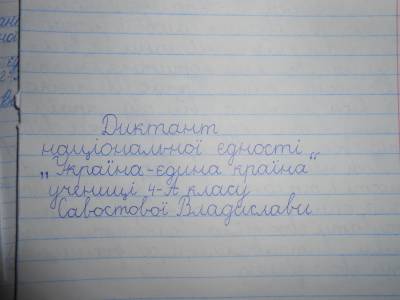 Диктант
національної єдності
„Україна-єдина країна“
учениці 4-А класу
Савостової Владислави